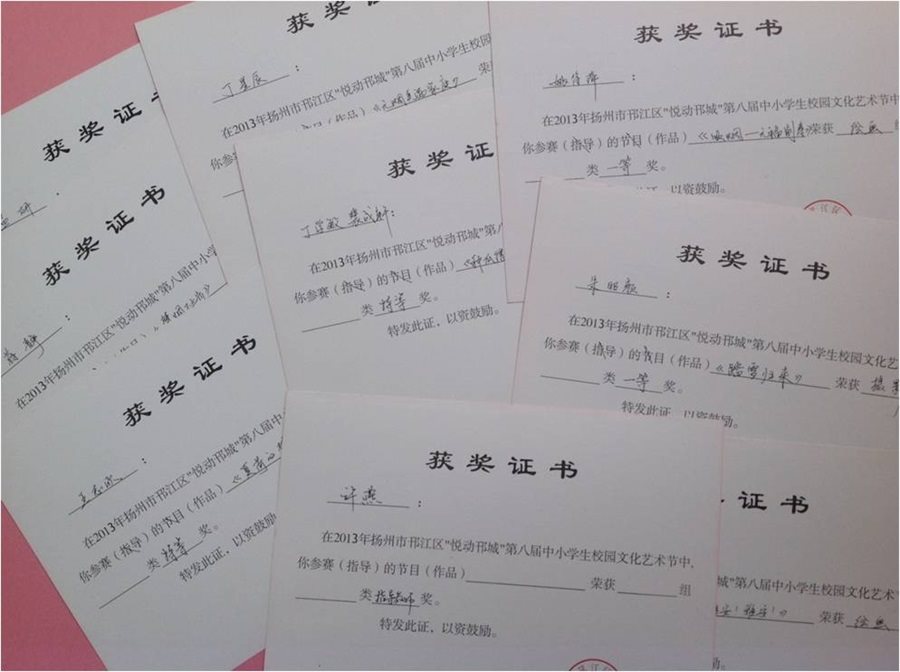 获奖证书
在2013年扬州市邗江区"悦动邗城"第八届中小学生校园
你参
获奖证书
:
在2013年扬州市邗江区"悦动邗城"第八届中小学生校园文化艺术节
你参赛（指导）的节目（作品） 荣获 绘画
类 一等 奖。
以资鼓励。
获奖证
研
获奖证
:
在2013年扬州市邗江区"悦动邗城"第八
你参赛（指导）的节目（作品）
类 特等 奖。
特发此证，以资鼓励。
获奖证书
静 :
在2013年扬州市邗江区"悦动邗城"第八届中小学
获奖证书
:
在2013年扬州市邗江区"悦动邗城"第八届中小学生校园文化艺
你参赛（指导）的节目（作品）《踏雪归来》 荣获
类 一等 奖。
特发此证，以资鼓励。
获奖证书
:
在2013年扬州市邗江区"悦动邗城"第八届中
你参赛（指导）的节目（作品）
类 特等 奖。
特发此证，以资鼓励
获奖证书
许燕 :
在2013年扬州市邗江区"悦动邗城"第八届中小学生校园文化艺术节中，
你参赛（指导）的节目（作品） 荣获 组
类 指导老师 奖。
特发此证，以资鼓励。
证书
城"第八届中小学生校园文化艺术
荣获 绘画
励。